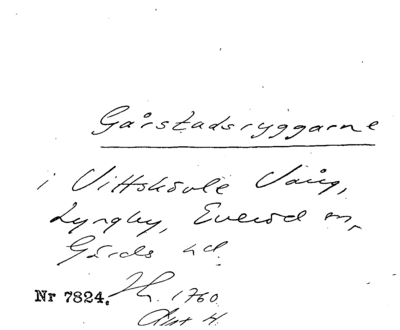 Gårstadsryggarne
i Vittskövle Vång,
Lyngby, Everöd m,
Gärds hd.
Nr 7824. 1760